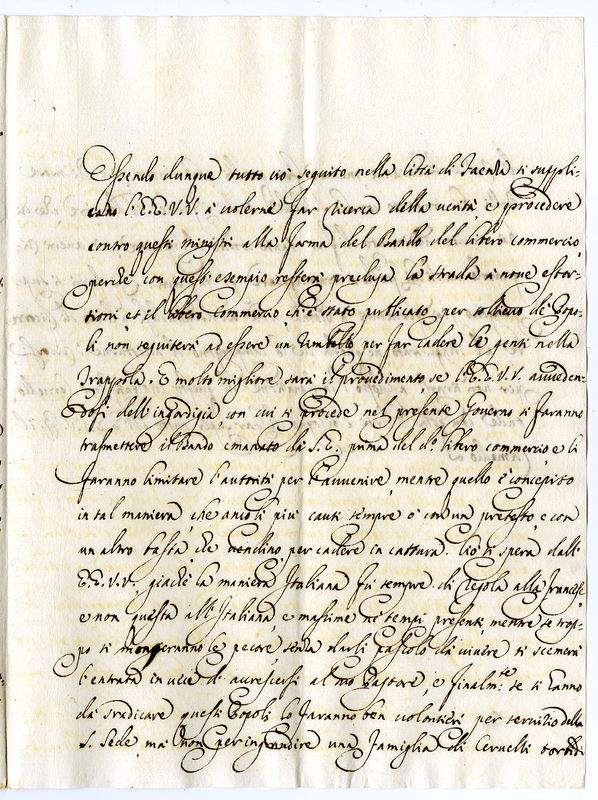 Essendo dunque tutto ciò seguito nella Città di Faenza si suppli-
cano l'E.E. V.V. à volerne far ricerca della verità, e procedere
contro questi ministri alla forma del Bando del libero commercio,
perche con questi esempio resterà preclusa la strada à nove estor-
tioni et il libero Commercio, ch'è stato publicato per sollievo de Popo-
li non seguiterà ad essere un Zimbello per far cadere le genti nella
Trappola. E molto migliore sarà il provedimento se l'E.E. V.V. avveden-
dosi dell'ingordigia con cui si procede nel presente Governo si faranno
trasmettere il Bando emanato da S.E. prima del d.º libero commercio, e li
faranno limitare l'autorità per l'avvenire, mentre quello è concepito
in tal maniera, che anco li più cauti sempre ò con un pretesto, e con
un altro basta, che venghino per cadere in cattura. Ciò si spera dall'
E.E. V.V., giache la maniera Italiana fù sempre di regola alla francese,
e non questa all'Italiana, e massime ne' tempi presenti, mentre se trop-
po si mongeranno le pecore senza darli pascolo da vivere si scemerà
l'entrata in vece di accrescersi al suo Pastore, e finalm.te se si hanno
da sradicare questi Popoli lo faranno ben volontieri per servitio della
S. Sede, ma non per ingrandire una famiglia di Cervelli torbidi